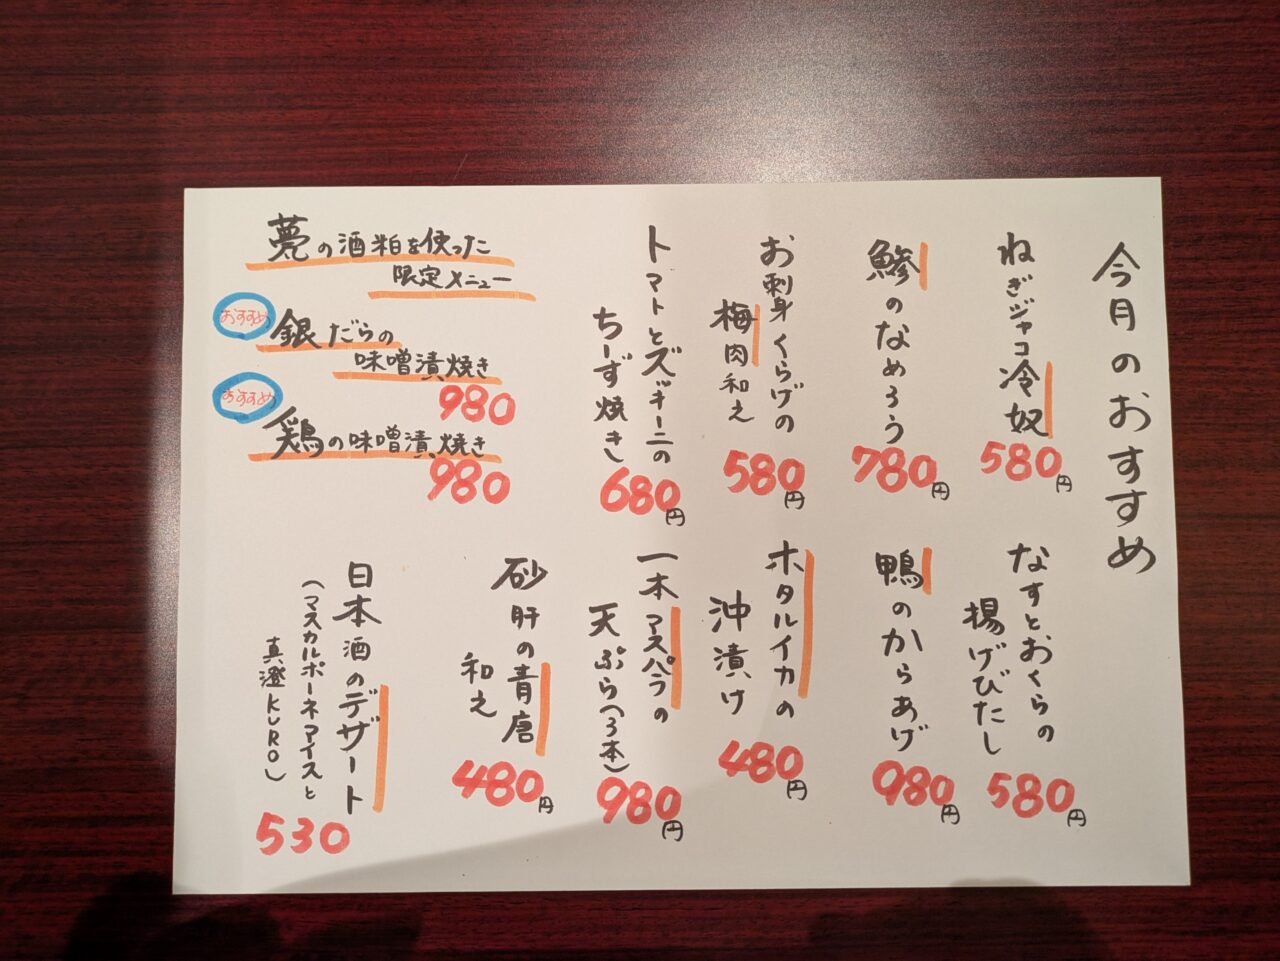 今月のおすすめ
ねぎジャコ冷奴
580円
鯵のなめろう
780円
お刺身くらげの
梅肉和え
580円
トマトとズッキーニの
ちーず焼き
680円
甍の酒粕を使った
限定メニュー
おすすめ
銀だらの
味噌漬焼き
980
おすすめ
鶏の味噌漬焼き
980
なすとおくらの
揚げびたし
580円
鴨のからあげ
980円
ホタルイカの
沖漬け
480円
一本マスパラの
天ぷら(3本)
980円
砂肝の青唐
和え
480円
日本酒のデザート
(マスカルポーネアイスと
真澄KURO)
530